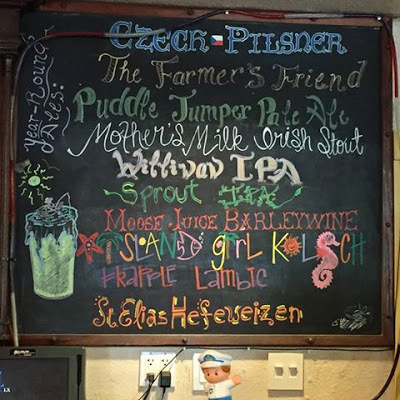 Year-Round Ales:
Czech Pilsner
The Farmer's Friend
Puddle Jumper Pale Ale
Mother's Milk Irish Stout
Williwaw IPA
Sprout IPA
Moose Juice BARLEYWINE
ISLAND GIRL KOLSCH
FRAPPLE LAMBIC
St. Elias Hefeweizen